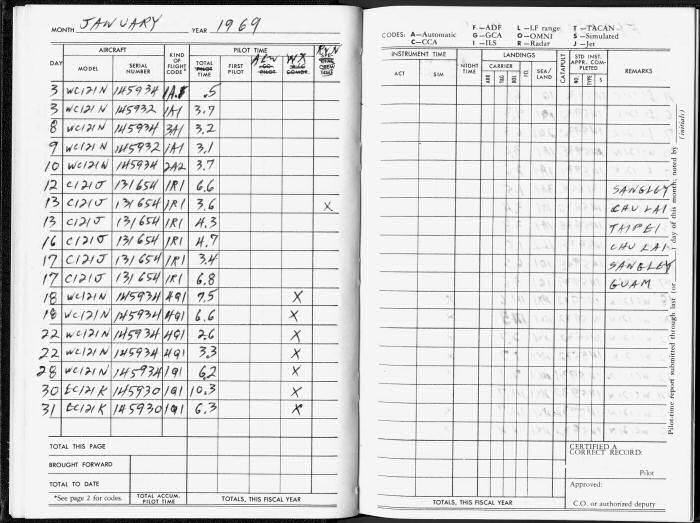 MONTH JANUARY YEAR 1969
DAY AIRCRAFT KIND OF FLIGHT CODE* TOTAL PILOT TIME PILOT TIME
MODEL SERIAL NUMBER FIRST PILOT WX
3 WC121N 145934 1A1 .5
3 WC121N 145932 1A1 3.7
8 WC121N 145934 3A1 3.2
9 WC121N 145932 1A1 3.1
10 WC121N 145934 2A2 3.7
12 C121J 131654 1R1 6.6
13 C121J 131654 1R1 3.6 X
13 C121J 131654 1R1 4.3
16 C121J 131654 1R1 4.7
17 C121J 131654 1R1 3.4
17 C121J 131654 1R1 6.8
18 WC121N 145934 4Q1 7.5 X
18 WC121N 145934 4Q1 6.6 X
22 WC121N 145934 4Q1 2.6 X
22 WC121N 145934 4Q1 3.3 X
28 WC121N 145934 1Q1 6.2 X
30 EC121K 145930 1Q1 10.3 X
31 EC121K 145930 1Q1 6.3 X
TOTAL THIS PAGE
BROUGHT FORWARD
TOTAL TO DATE
*See page 2 for codes. TOTAL ACCUM. PILOT TIME TOTALS, THIS FISCAL YEAR
F—ADF L—LF range T—TACAN
CODES: A—Automatic G—GCA O—OMNI S—Simulated
C—CCA I—ILS R—Radar J—Jet
INSTRUMENT TIME NIGHT TIME LANDINGS CATAPULT STD INST. APPR. COMPLETED REMARKS
ACT SIM CARRIER SEA/LAND NO. TYPE S
ARR T&G BOL
SANGLEY
CHU LAI
TAIPEI
CHU LAI
SANGLEY
GUAM
Pilot-time report submitted through last (or day of this month; noted by (initials)
CERTIFIED A CORRECT RECORD:
Pilot
Approved:
TOTALS, THIS FISCAL YEAR C.O. or authorized deputy